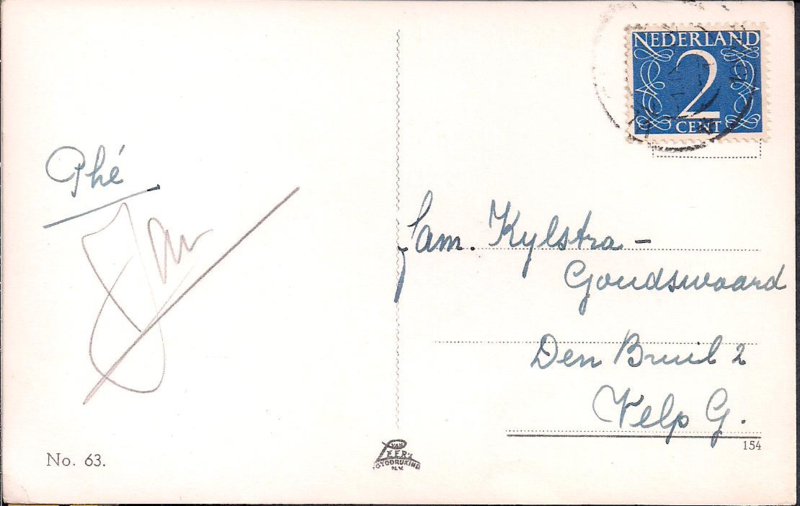 NEDERLAND
2
CENT
Phé
Jan
Fam. Kylstra-
Goudswaard
Den Bruil 2
Velp G.
No. 63.
VAN
LEER'S
FOTODRUKIND
N.V.
154